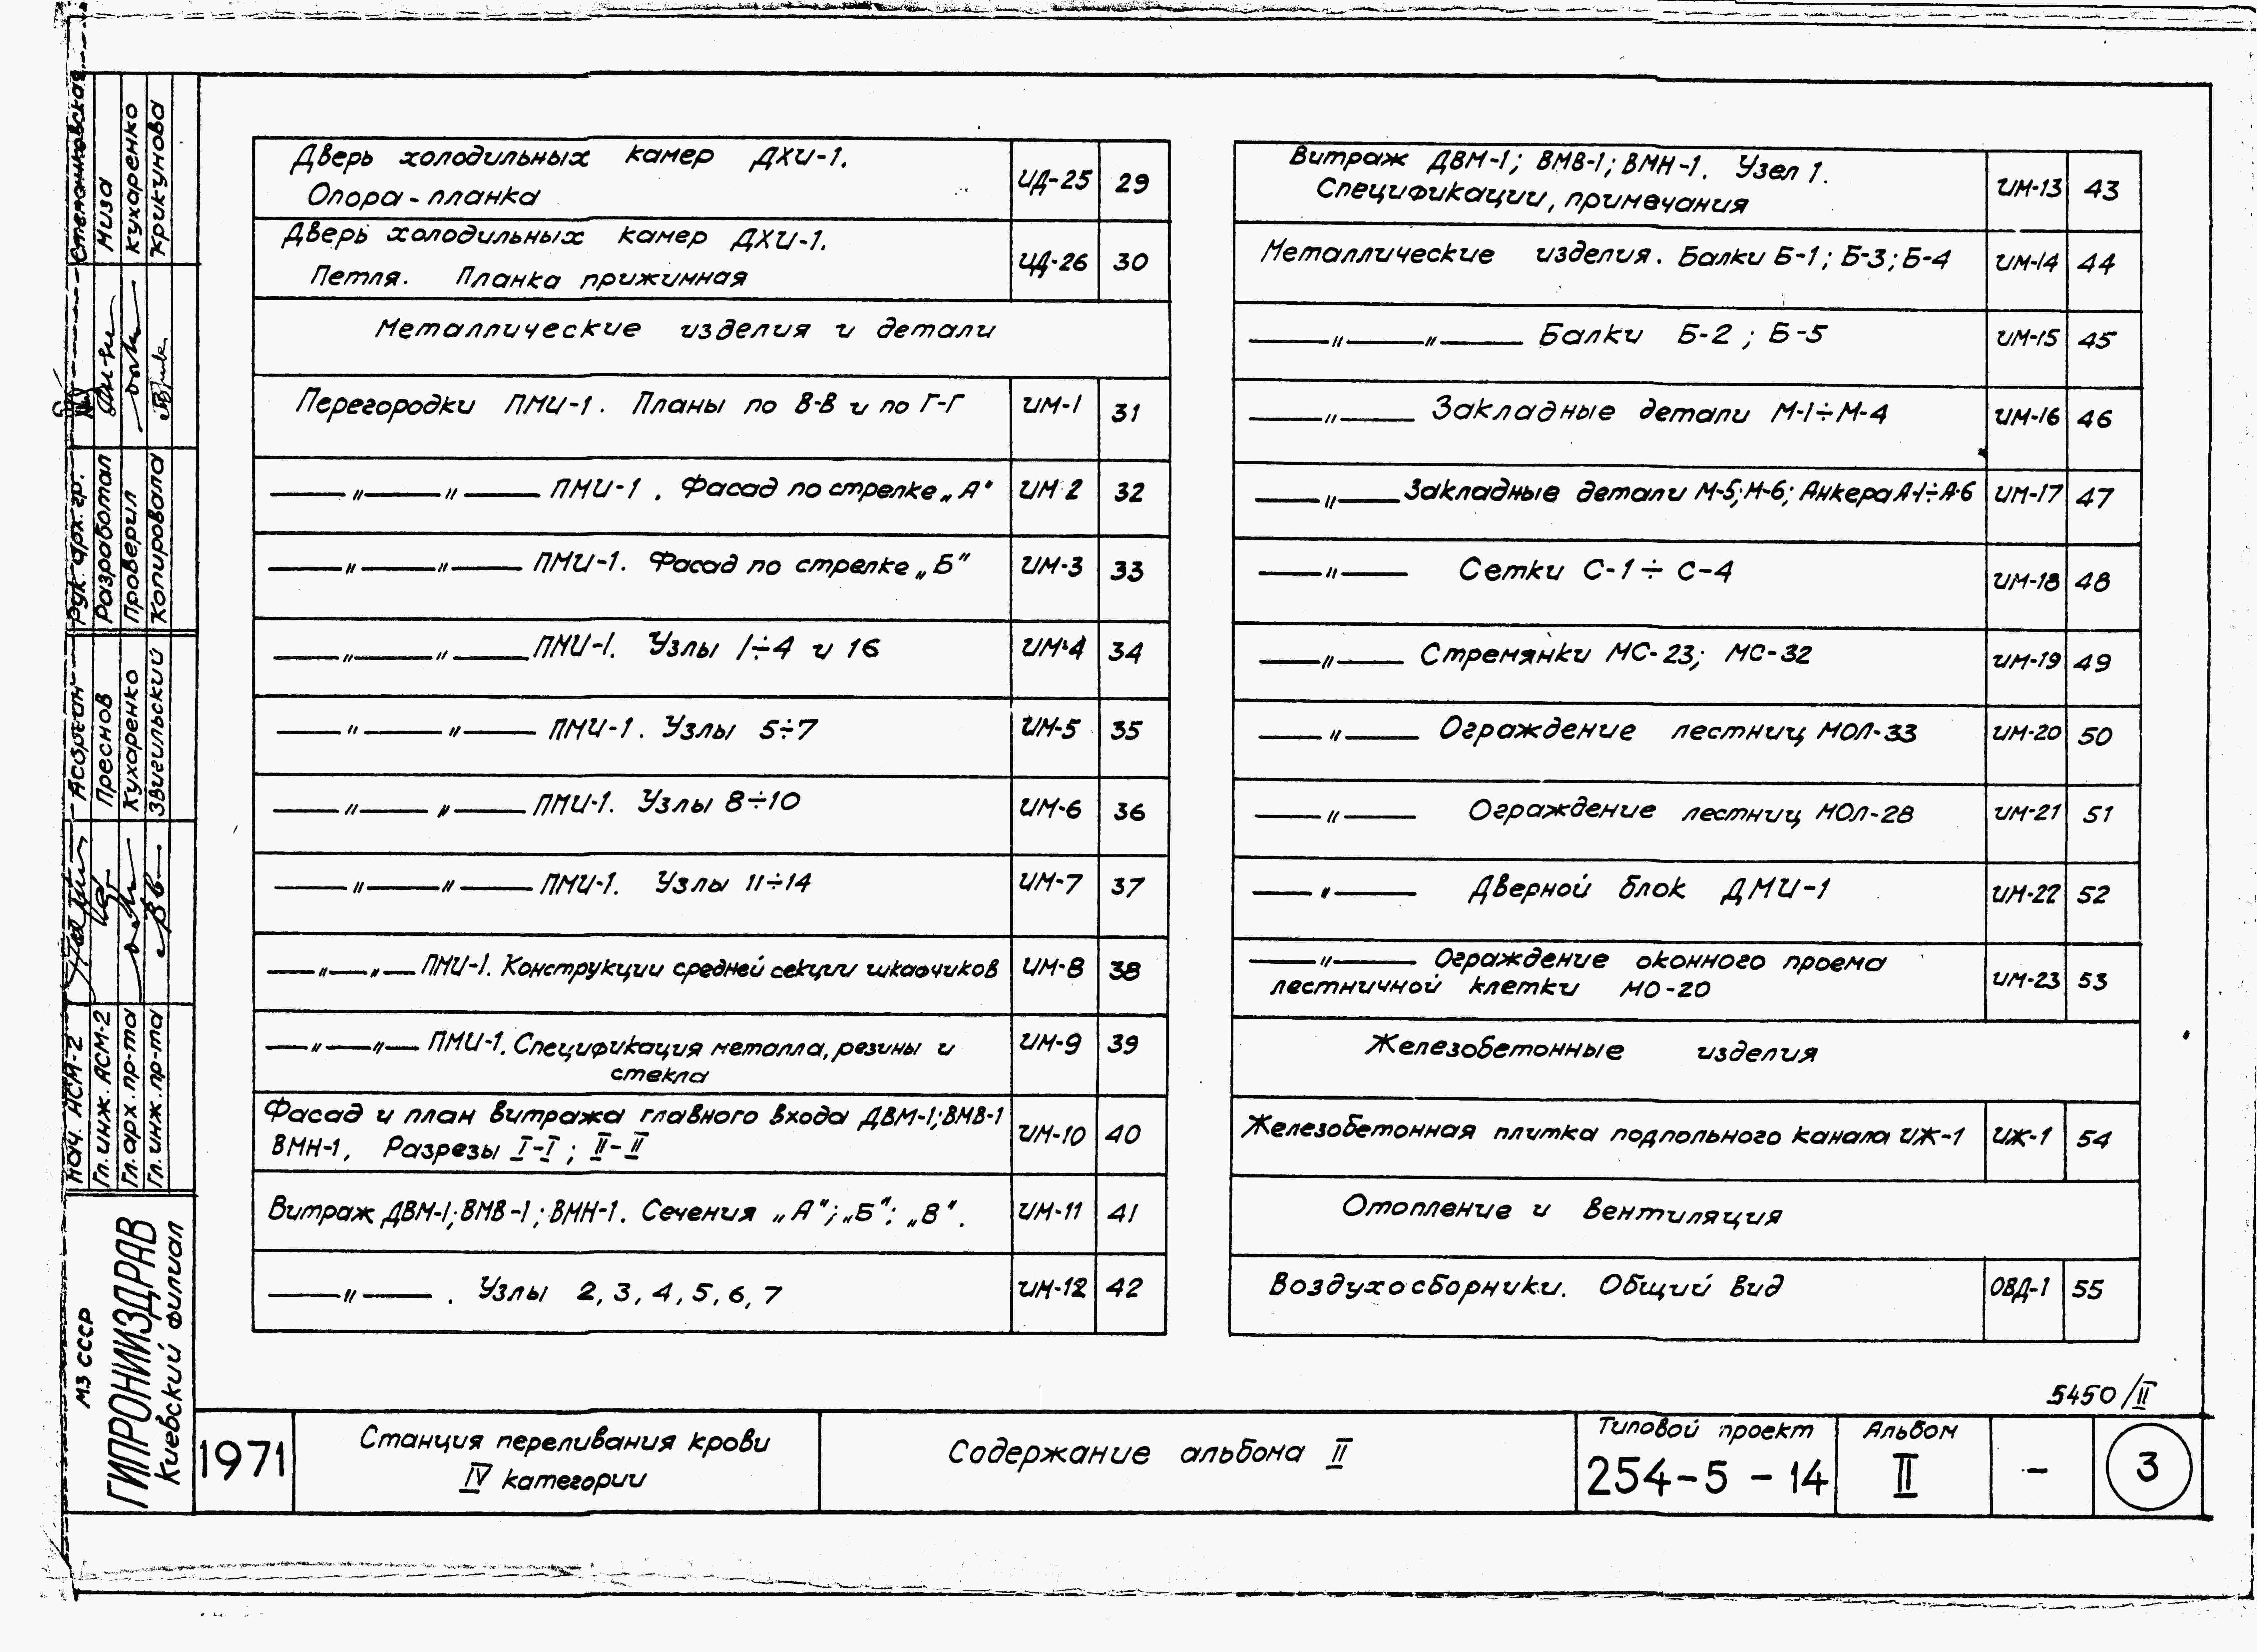 Дверь холодильных камер ДХИ-1.
Опора-планка
ИД-25 29
Дверь холодильных камер ДХИ-1.
Петля. Планка прижимная
ИД-26 30
Металлические изделия и детали
Перегородки ПМИ-1. Планы по В-В и по Г-Г ИМ-1 31
—〃—〃— ПМИ-1. Фасад по стрелке „А" ИМ-2 32
—〃—〃— ПМИ-1. Фасад по стрелке „Б" ИМ-3 33
—〃—〃— ПМИ-1. Узлы 1÷4 и 16 ИМ-4 34
—〃—〃— ПМИ-1. Узлы 5÷7 ИМ-5 35
—〃—〃— ПМИ-1. Узлы 8÷10 ИМ-6 36
—〃—〃— ПМИ-1. Узлы 11÷14 ИМ-7 37
—〃—〃— ПМИ-1. Конструкции средней секции шкафчиков ИМ-8 38
—〃—〃— ПМИ-1. Спецификация металла, резины и
стекла
ИМ-9 39
Фасад и план витража главного входа ДВМ-1; ВМВ-1
ВМН-1, Разрезы I-I; II-II
ИМ-10 40
Витраж ДВМ-1; ВМВ-1; ВМН-1. Сечения „А"; „Б"; „В". ИМ-11 41
—〃— . Узлы 2, 3, 4, 5, 6, 7 ИМ-12 42
Витраж ДВМ-1; ВМВ-1; ВМН-1. Узел 1.
Спецификации, примечания
ИМ-13 43
Металлические изделия. Балки Б-1; Б-3; Б-4 ИМ-14 44
—〃—〃— Балки Б-2; Б-5 ИМ-15 45
—〃— Закладные детали М-1÷М-4 ИМ-16 46
—〃— Закладные детали М-5; М-6; Анкера А-1÷А-6 ИМ-17 47
—〃— Сетки С-1÷С-4 ИМ-18 48
—〃— Стремянки МС-23; МС-32 ИМ-19 49
—〃— Ограждение лестниц МОЛ-33 ИМ-20 50
—〃— Ограждение лестниц МОЛ-28 ИМ-21 51
—〃— Дверной блок ДМИ-1 ИМ-22 52
—〃— Ограждение оконного проема
лестничной клетки МО-20
ИМ-23 53
Железобетонные изделия
Железобетонная плитка подпольного канала ИЖ-1 ИЖ-1 54
Отопление и вентиляция
Воздухосборники. Общий вид ОВД-1 55
5450/II
1971
Станция переливания крови
IV категории
Содержание альбома II
Типовой проект
254-5-14
Альбом
II
-
3
МЗ СССР
ГИПРОНИИЗДРАВ
Киевский филиал
Нач. АСМ-2
Гл. инж. АСМ-2 Преснов
Гл. арх. пр-та Кухаренко
Гл. инж. пр-та Звигильский
Рук. арх. гр.
Разработал Миза
Проверил Кухаренко
Копировала Крикунова